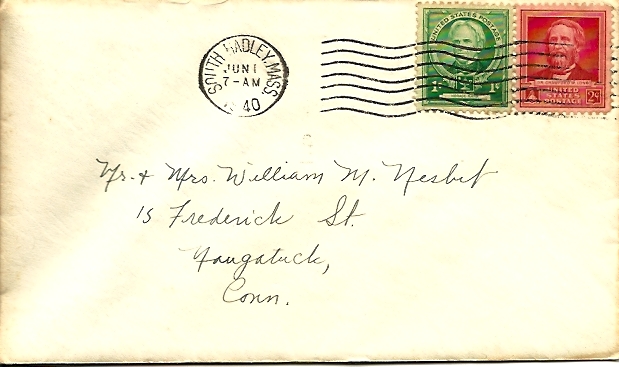 SOUTH HADLEY, MASS.
JUN 1
7-AM
1940
UNITED STATES POSTAGE
1¢ 1¢
UNITED
STATES
POSTAGE
2¢
Mr. & Mrs. William M. Nesbit
15 Frederick St.
Naugatuck,
Conn.